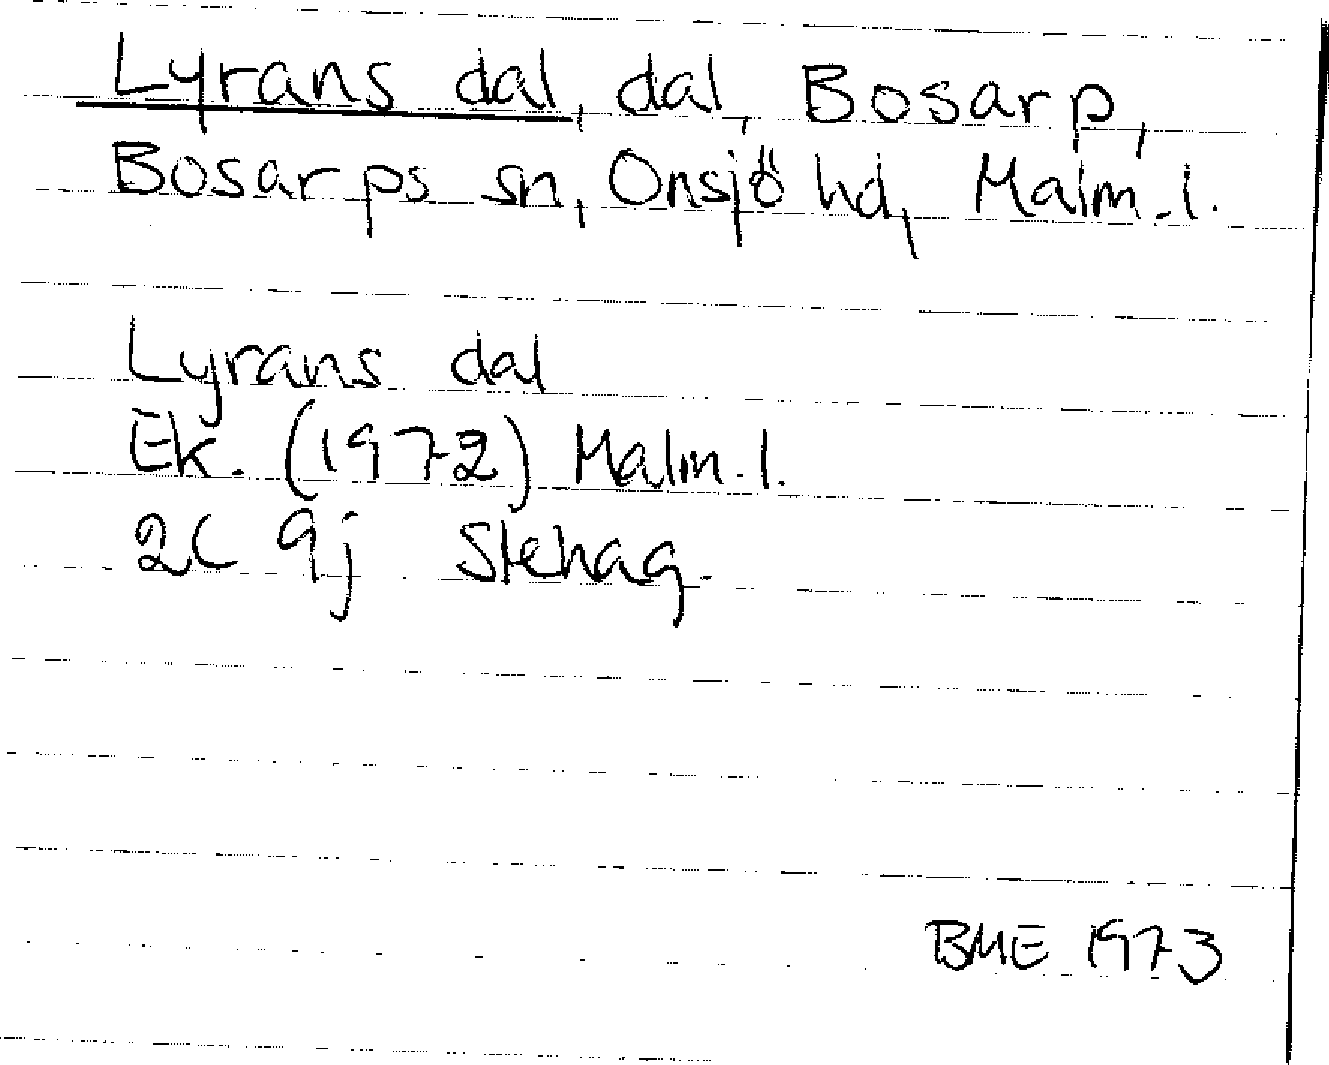 Lyrans dal, dal, Bosarp,
Bosarps sn, Onsjö hd, Malm.l.
Lyrans dal
Ek. (1972) Malm.l.
2C 9j Stehag.
BME 1973